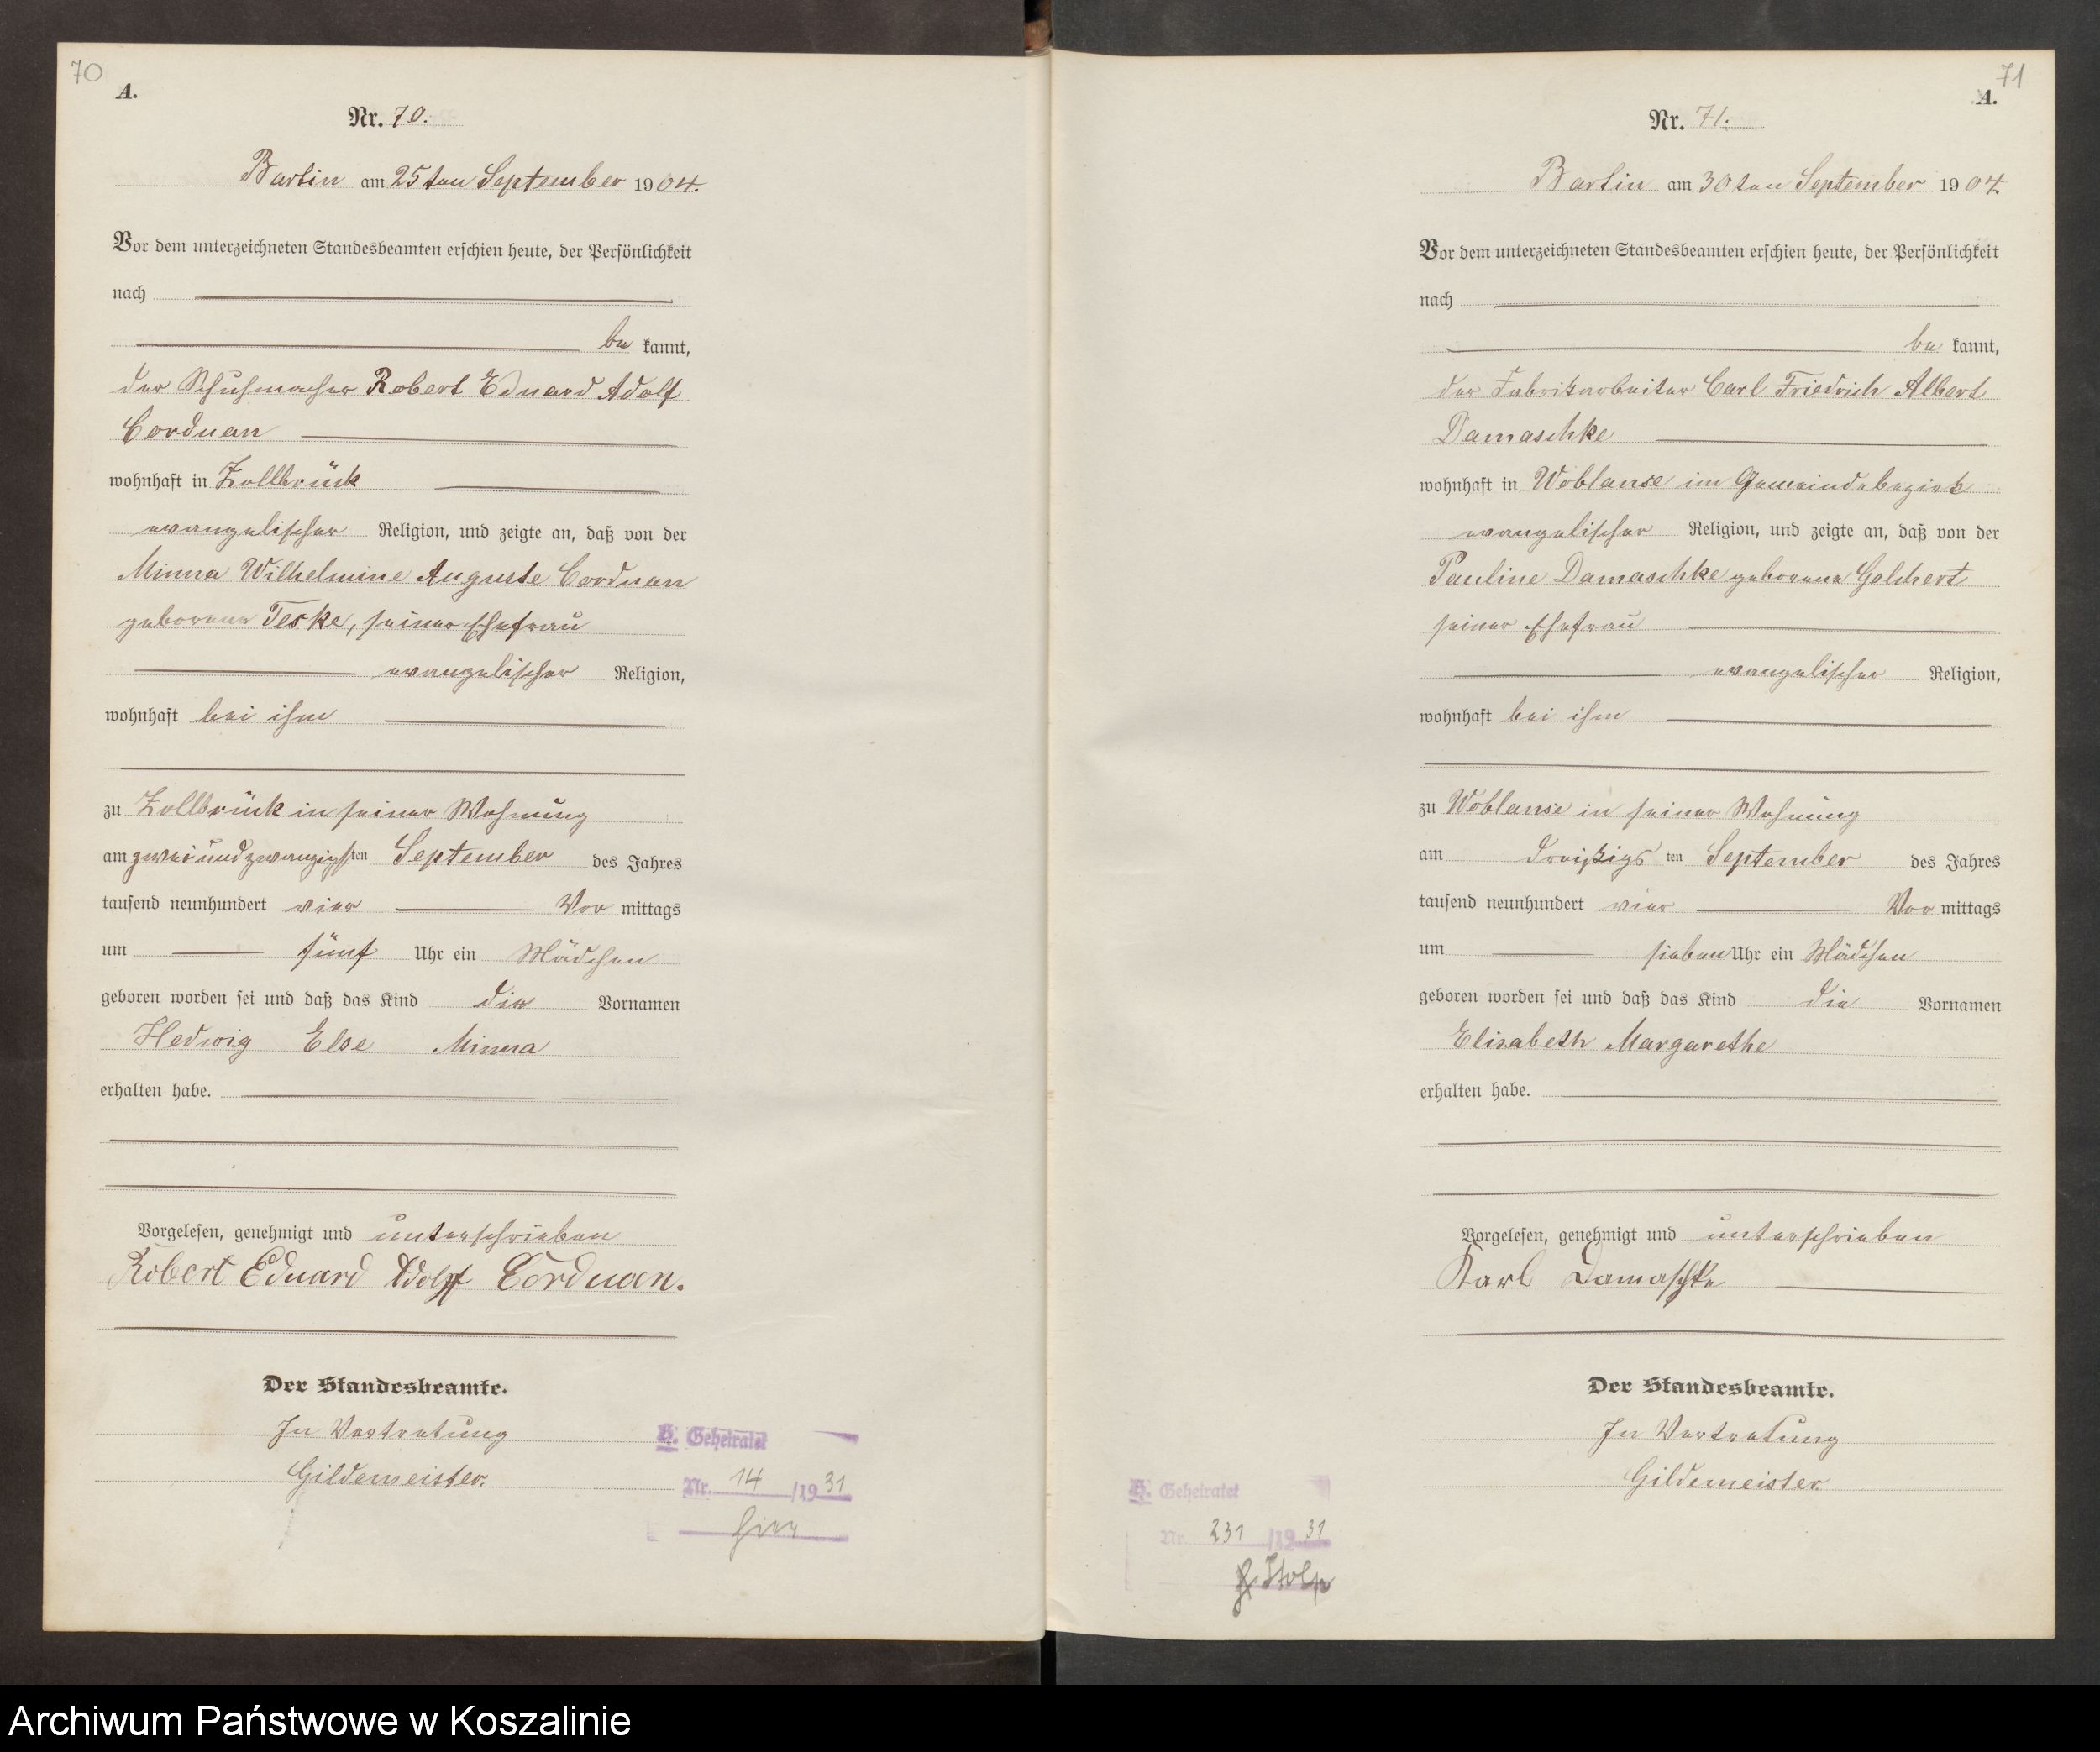 70
A.
Nr. 70.
Bartin am 25ten September 1904.
Vor dem unterzeichneten Standesbeamten erschien heute, der Persönlichkeit
nach
be kannt,
der Schuhmacher Robert Eduard Adolf
Corduan
wohnhaft in Zollbrück
evangelischer Religion, und zeigte an, daß von der
Minna Wilhelmine Auguste Corduan
geborene Teske, seiner Ehefrau
evangelischer Religion,
wohnhaft bei ihm
zu Zollbrück in seiner Wohnung
am zweiundzwanzigsten September des Jahres
tausend neunhundert vier Vor mittags
um fünf Uhr ein Mädchen
geboren worden sei und daß das Kind die Vornamen
Hedwig Else Minna
erhalten habe.
Vorgelesen, genehmigt und unterschrieben
Robert Eduard Adolf Corduan.
Der Standesbeamte.
In Vertretung
Gildemeister.
H. Geheiratet
Nr. 14 /1931
hier
71
A.
Nr. 71.
Bartin am 30ten September 1904.
Vor dem unterzeichneten Standesbeamten erschien heute, der Persönlichkeit
nach
be kannt,
der Fabrikarbeiter Carl Friedrich Albert
Damaschke
wohnhaft in Woblanse im Gemeindebezirk
evangelischer Religion, und zeigte an, daß von der
Pauline Damaschke geborene Golchert
seiner Ehefrau
evangelischer Religion,
wohnhaft bei ihm
zu Woblanse in seiner Wohnung
am dreißigsten September des Jahres
tausend neunhundert vier Vor mittags
um sieben Uhr ein Mädchen
geboren worden sei und daß das Kind die Vornamen
Elisabeth Margarethe
erhalten habe.
Vorgelesen, genehmigt und unterschrieben
Karl Damaschke
Der Standesbeamte.
In Vertretung
Gildemeister.
H. Geheiratet
Nr. 231 /1931
Stolp
Archiwum Państwowe w Koszalinie